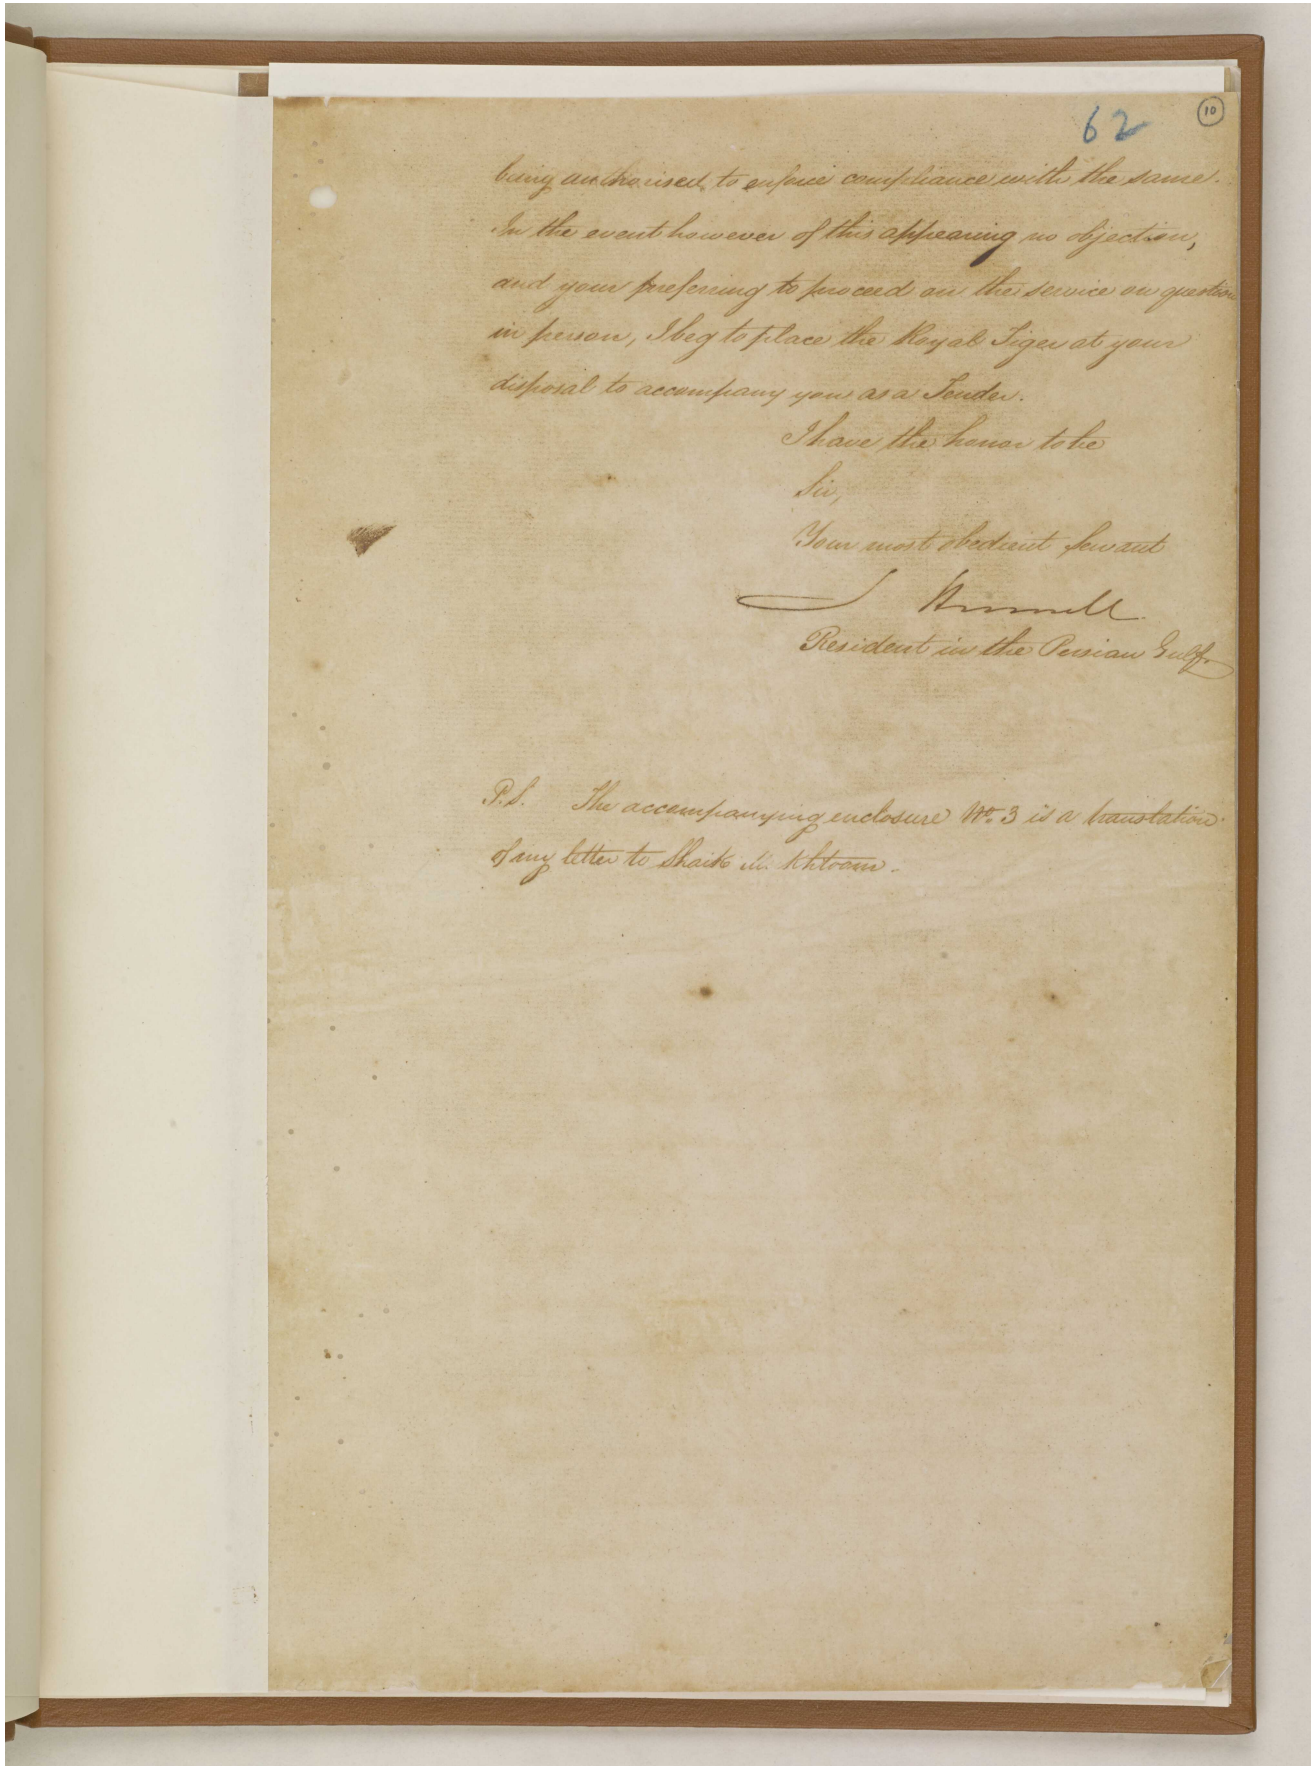 62
10
being authorised, to enforce compliance with the same.
In the event however of this appearing no objection,
and your preferring to proceed on the service on question
in person, I beg to place the Royal Tiger at your
disposal to accompany you as a Tender.
I have the honor to be
Sir,
Your most obedient Servant
Hennell
Resident in the Persian Gulf.
P.S. The accompanying enclosure No. 3 is a translation
of my letter to Shaik